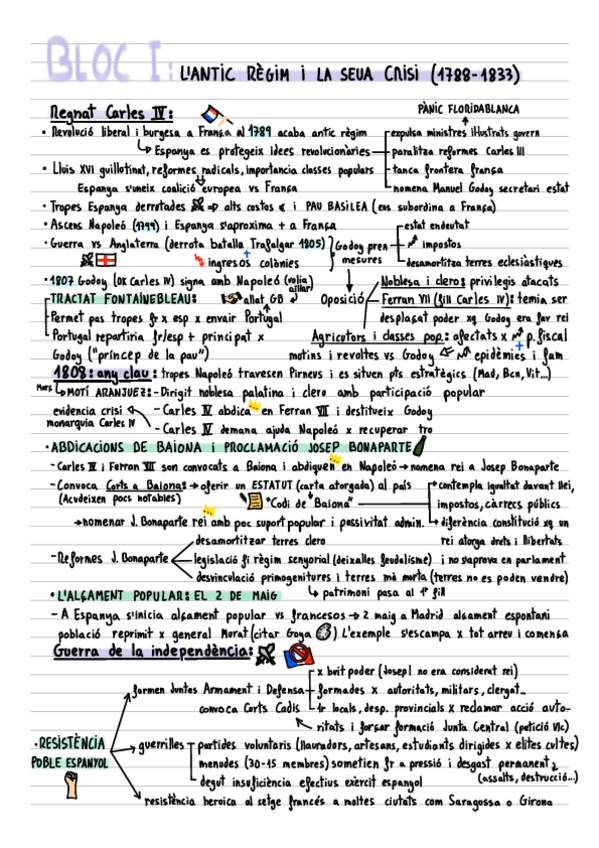 BLOC I: L'ANTIC RÈGIM i LA SEUA CRISI (1788-1833)
Regnat Carles IV:
PÀNIC FLORIDABLANCA
• Revolució liberal i burgesa a França al 1789 acaba antic règim
expulsa ministres il·lustrats govern
↳ Espanya es protegeix idees revolucionàries
paralitza reformes Carles III
• Lluís XVI guillotinat, reformes radicals, importancia classes populars
tanca frontera frança
Espanya s'uneix coalició europea vs França
nomena Manuel Godoy secretari estat
• Tropes Espanya derrotades ⇒ alts costos € i PAU BASILEA (ens subordina a França)
• Ascens Napoleó (1799) i Espanya s'aproxima + a França
estat endeutat
• Guerra vs Anglaterra (derrota batalla Trafalgar 1805)
Godoy pren mesures
impostos
ingresos colònies
desamortitza terres eclesiàstiques
• 1807 Godoy (OK Carles IV) signa amb Napoleó (volia aïllar)
Noblesa i clero: privilegis atacats
TRACTAT FONTAINEBLEAU: allat GB
Oposició
Ferran VII (fill Carles IV): temia ser
- Permet pas tropes fr x esp x envair Portugal
desplaçat poder xq Godoy era fav rei
- Portugal repartiria fr/esp + principat x
Agricultors i classes pop.: afectats x p. fiscal
Godoy ("príncep de la pau")
motins i revoltes vs Godoy + epidèmies i fam
1808: any clau: tropes Napoleó travesen Pirneus i es situen pts estratègics (Mad, Bcn, Vit...)
Març → MOTÍ ARANJUEZ: - Dirigit noblesa palatina i clero amb participació popular
evidencia crisi monarquia Carles IV
- Carles IV abdica en Ferran VII i destitueix Godoy
- Carles IV demana ajuda Napoleó x recuperar tro
• ABDICACIONS DE BAIONA i PROCLAMACIÓ JOSEP BONAPARTE
- Carles IV i Ferran VII son convocats a Baiona i abdiquen en Napoleó → nomena rei a Josep Bonaparte
- Convoca Corts a Baiona: → oferir un ESTATUT (carta atorgada) al país
contempla igualtat davant llei,
(Acudeixen pocs notables)
"Codi de Baiona"
impostos, càrrecs públics
→ homenar J. Bonaparte rei amb poc suport popular i passivitat admin.
diferència constitució xq un
desamortitzar terres clero
rei atorga drets i llibertats
- Reformes J. Bonaparte
legislació fi règim senyorial (deixalles feudalisme)
i no s'aprova en parlament
desvinculació primogenitures i terres mà morta (terres no es poden vendre)
• L'ALÇAMENT POPULAR: EL 2 DE MAIG
↳ patrimoni pasa al 1r fill
- A Espanya s'inicia alçament popular vs francesos → 2 maig a Madrid alsament espontani
població reprimit x general Murat (citar Goya) L'exemple s'escampa x tot arreu i comensa
Guerra de la independència:
x buit poder (Josep I no era considerat rei)
formen Juntes Armament i Defensa
formades x autoritats, militars, clergat...
convoca Corts Cadis
1r locals, desp. provincials x reclamar acció auto-
ritats i forçar formació Junta Central (petició Vlc)
• RESISTÈNCIA
POBLE ESPANYOL
guerrilles
partides voluntaris (llauradors, artesans, estudiants dirigides x elites cultes)
menudes (30-45 membres) sometien fr a pressió i desgast permanent
degut insuficiència efectius exèrcit espanyol
(assalts, destrucció...)
resistència heroica al setge francés a moltes ciutats com Saragossa o Girona